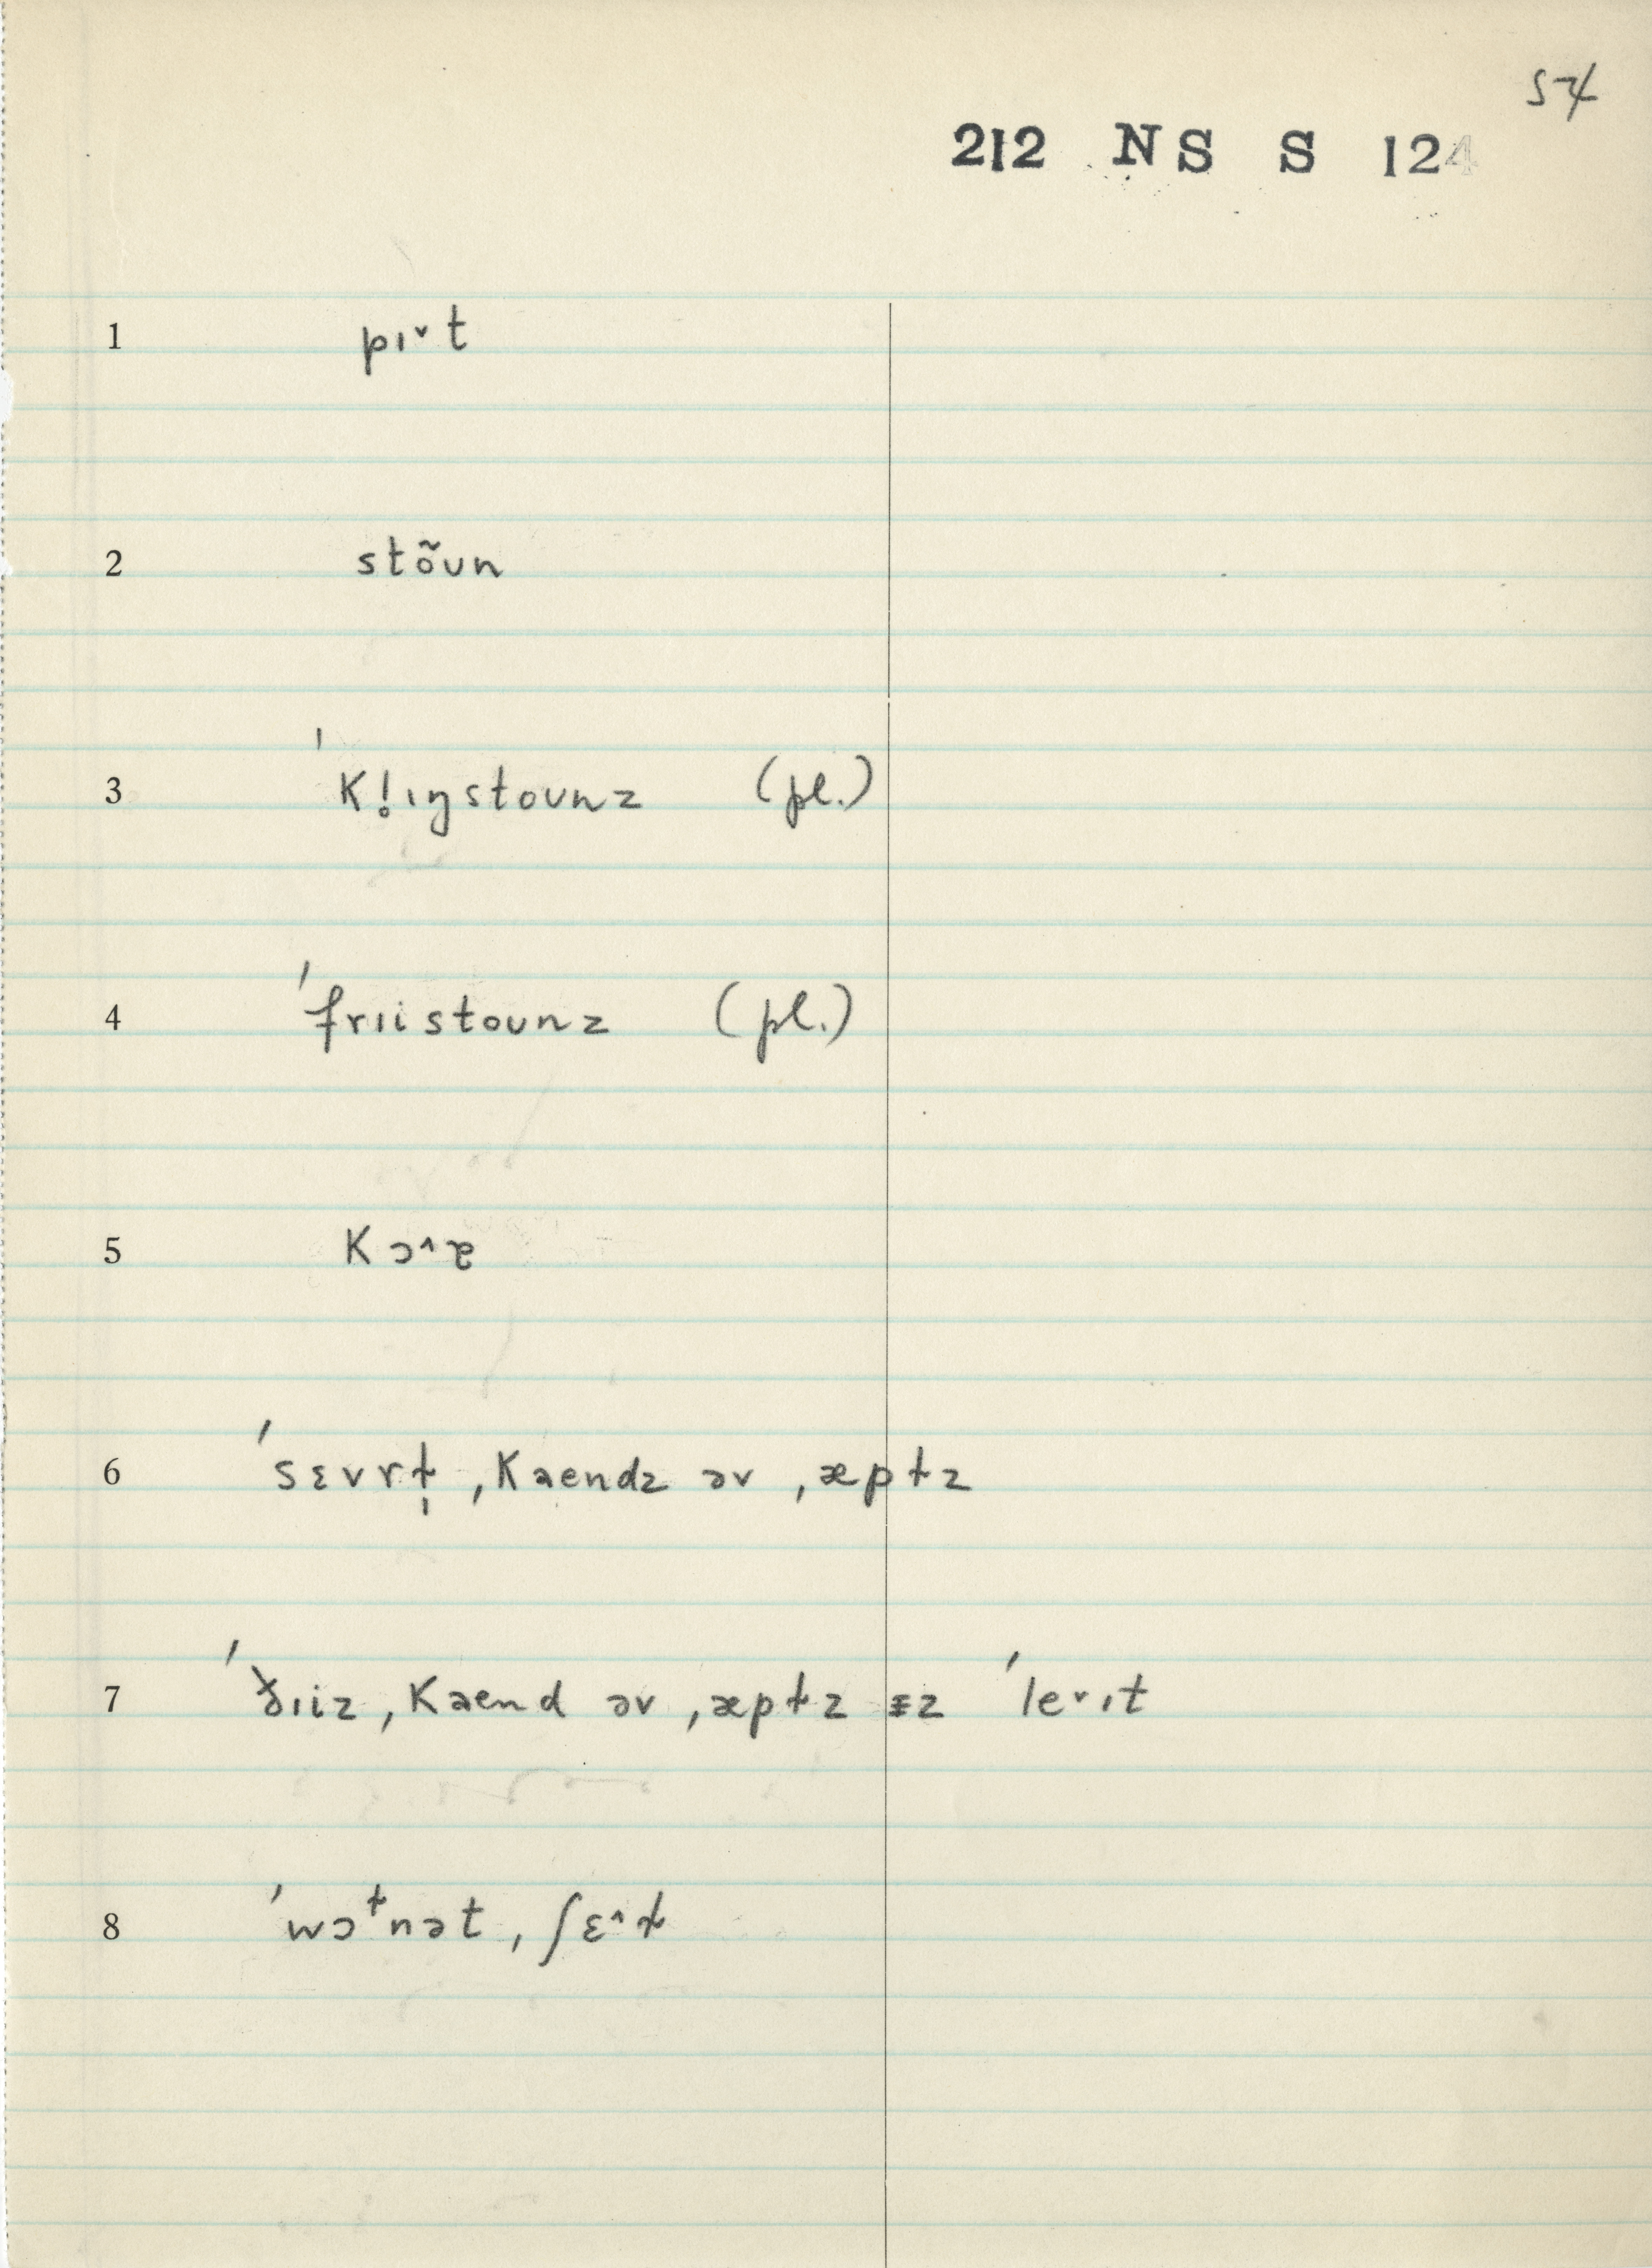 54
212 NS S 124
1 pɪ˅t
2 stõʊn
3 ˈk!ɪŋstoʊnz (pl.)
4 ˈfrɪistoʊnz (pl.)
5 kɔ˄ɚ
6 ˈsɛvrɫ̩ ˌkaendz əv ˌæpɫz
7 ˈðɪiz ˌkaend əv ˌæpɫz ᵻz ˈle˅ɪt
8 ˈwɔᵗnət ˌʃɛ˄ɫ